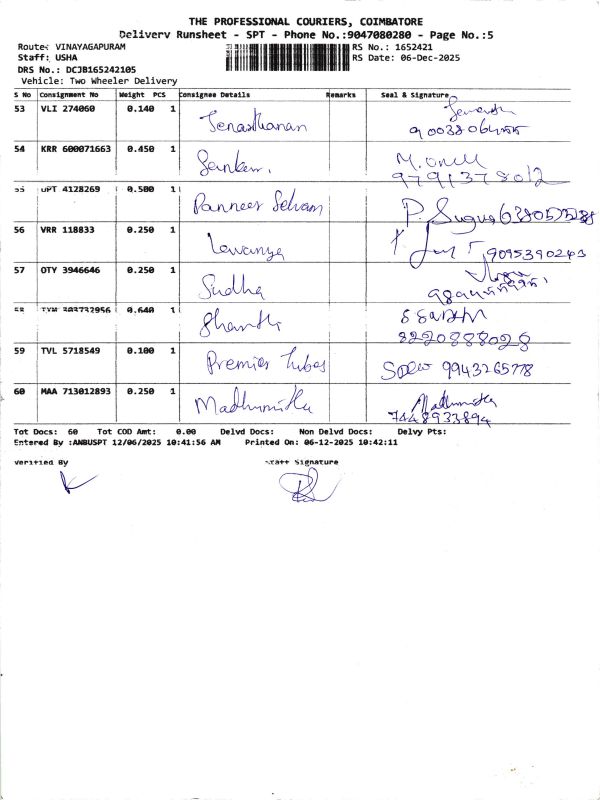 THE PROFESSIONAL COURIERS, COIMBATORE
Delivery Runsheet - SPT - Phone No.:9047080280 - Page No.:5
Route: VINAYAGAPURAM RS No.: 1652421
Staff: USHA RS Date: 06-Dec-2025
DRS No.: DCJB165242105
Vehicle: Two Wheeler Delivery
S No Consignment No Weight PCS Consignee Details Remarks Seal & Signature
53 VLI 274060 0.140 1 Jenasthanan
54 KRR 600071663 0.450 1
9791378012
55 UPT 4128269 0.500 1 Panneer Selvam P. Sugus
56 VRR 118833 0.250 1 Lavanya 9095390243
57 OTY 3946646 0.250 1 Sudha
58 TVM 303732956 0.640 1 Shanthi
8220888028
59 TVL 5718549 0.100 1 Premier Tubes 9943265778
60 MAA 713012893 0.250 1 Madhumitha Madhumitha
7448933894
Tot Docs: 60 Tot COD Amt: 0.00 Delvd Docs: Non Delvd Docs: Delvy Pts:
Entered By :ANBUSPT 12/06/2025 10:41:56 AM Printed On: 06-12-2025 10:42:11
Verified By Staff Signature